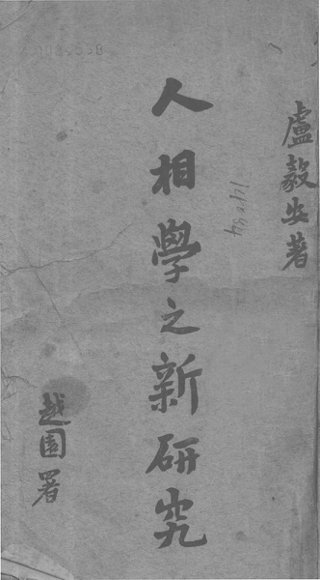 盧毅安著
人相學之新研究
越園署